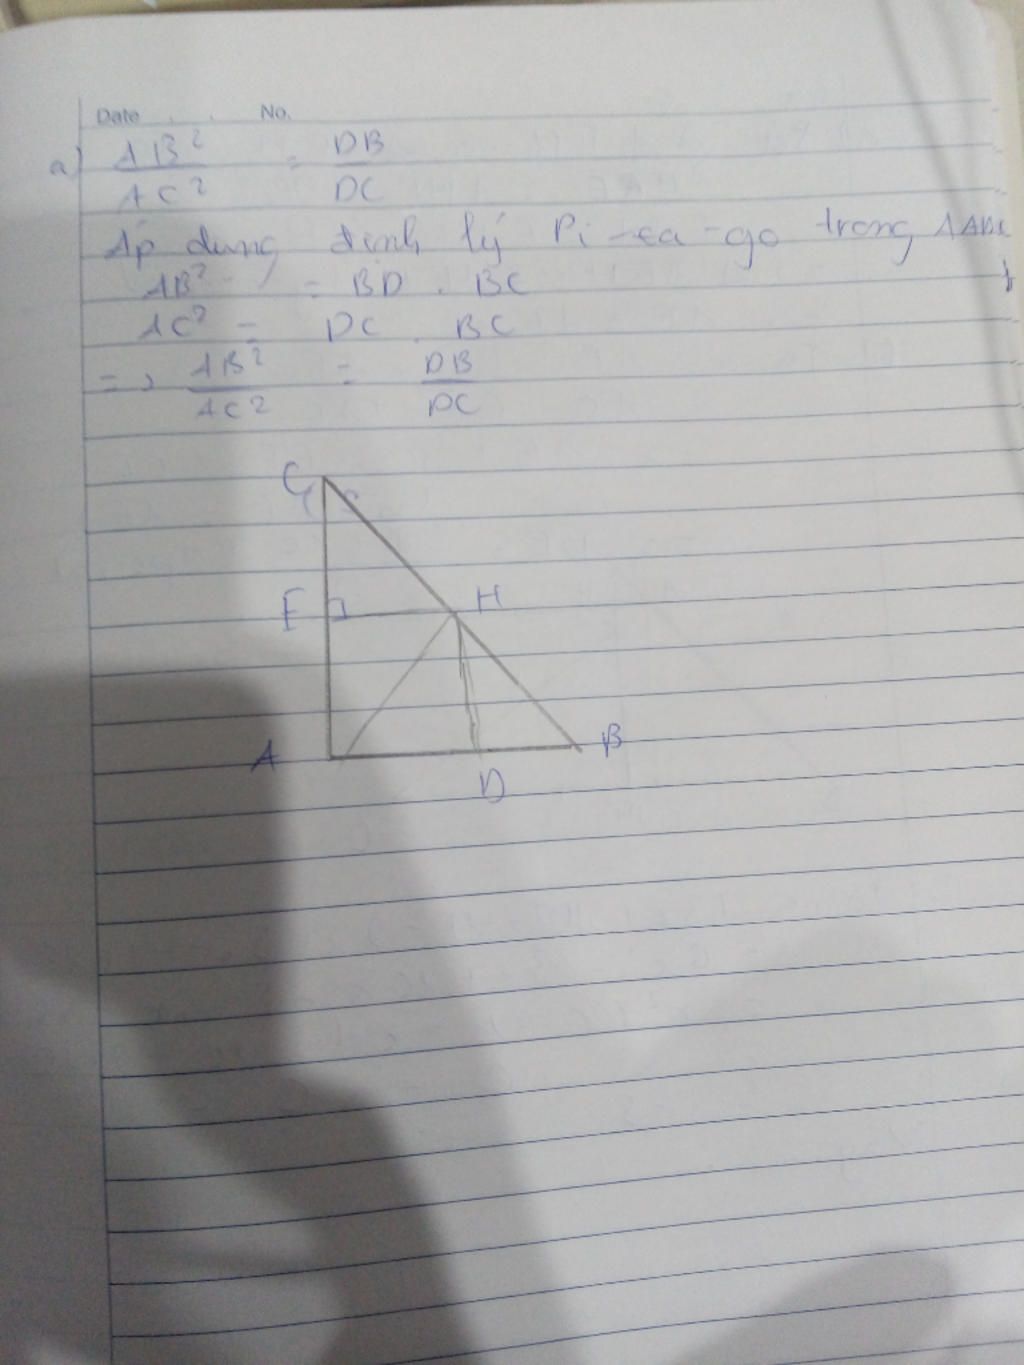 Date . . No.
a) AB² / AC² = DB / DC
Áp dụng định lý Pi-ta-go trong ΔABC
AB² = BD . BC
AC² = DC . BC
=> AB² / AC² = DB / DC
C
E H
A B
D